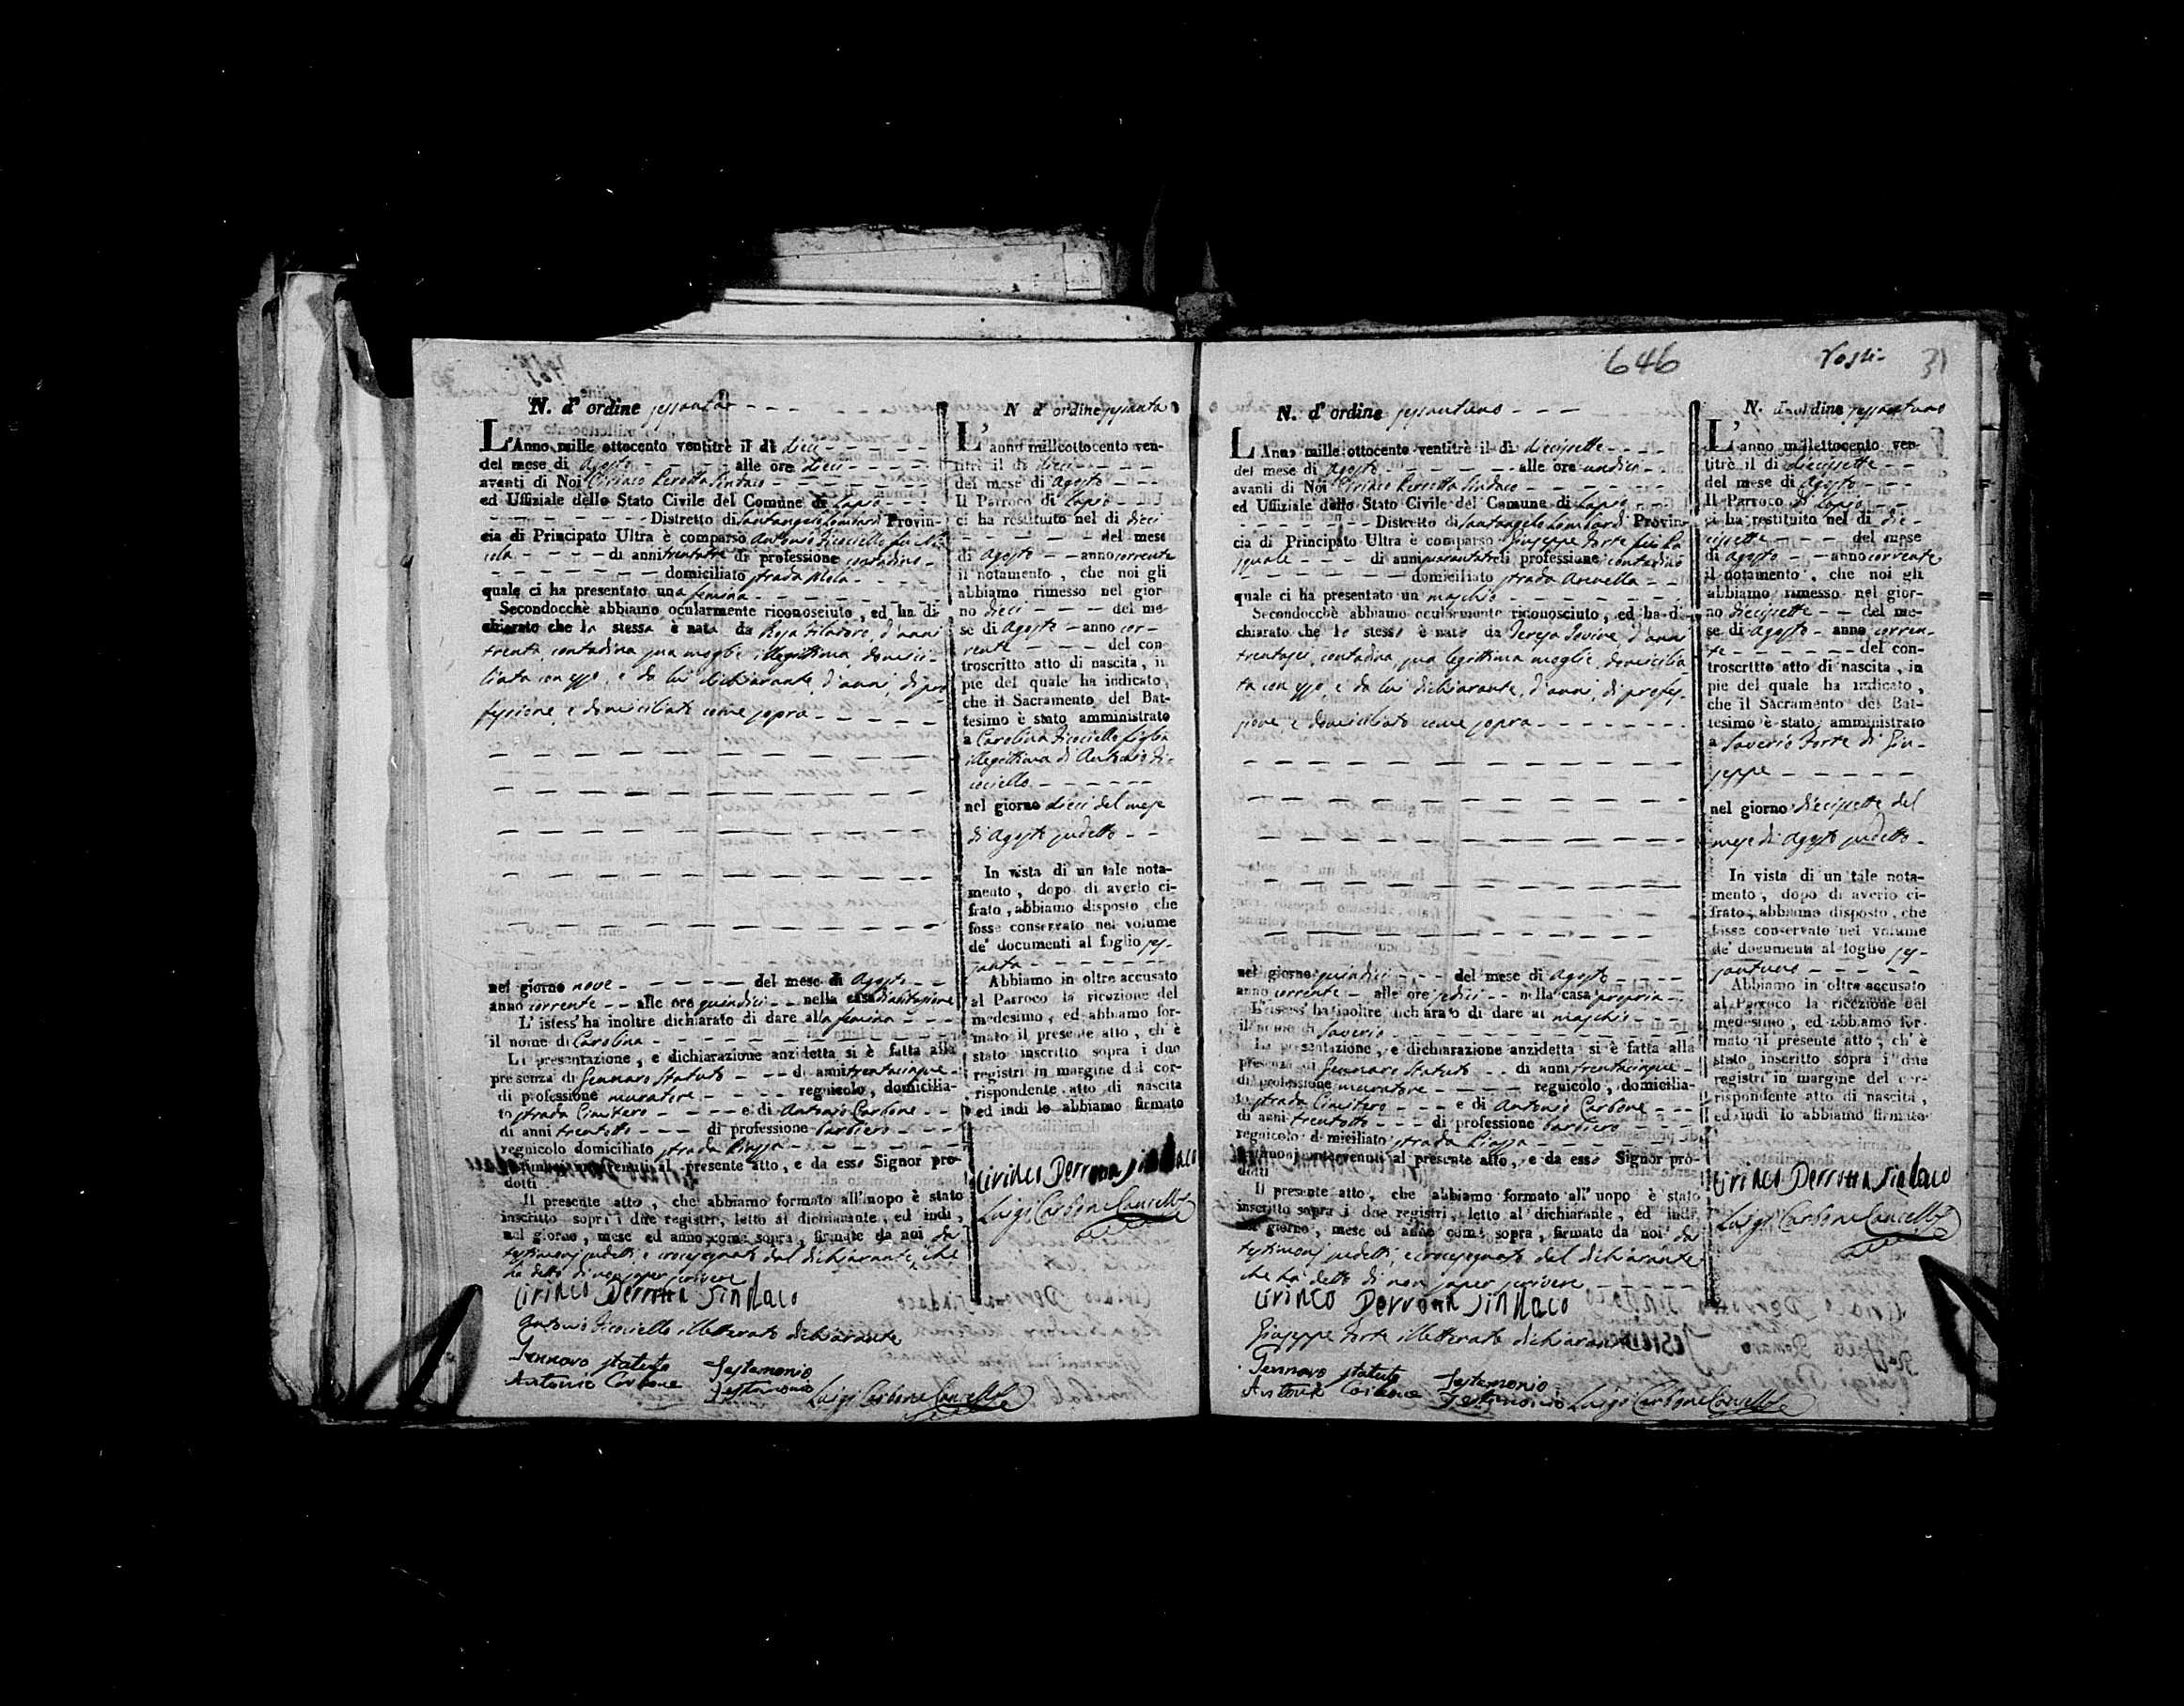 N. d' ordine sessanta
L'Anno mille ottocento ventitrè il di dieci
del mese di Agosto alle ore dieci
avanti di Noi Ciriaco Perrotta Sindaco
ed Uffiziale dello Stato Civile del Comune di Lapio
Distretto di Santangelo Lombardi Provin-
cia di Principato Ultra è comparso Antonio Ficociello fu Ni
cola di anni trentatre di professione contadino
domiciliato strada Mola
quale ci ha presentato una femina
Secondocchè abbiamo ocularmente riconosciuto, ed ha di-
chiarato che la stessa è nata da Rosa d'anni
trenta, contadina sua moglie illegittima, domici-
liata con esso, e da lui dichiarante, d'anni, di pro
fessione, e domiciliato come sopra
nel giorno nove del mese di Agosto
anno corrente alle ore quindici nella casa d'abitazione
L' istess' ha inoltre dichiarato di dare alla femina
il nome di Carolina
La presentazione, e dichiarazione anzidetta si è fatta alla
presenza di Gennaro Statuto di anni trentacinque
di professione muratore regnicolo, domicilia-
to strada Cimitero e di Antonio Carbone
di anni trentotto di professione barbiero
regnicolo domiciliato strada Piazza
testimonj intervenuti al presente atto, e da esso Signor pro-
dotti
Il presente atto, che abbiamo formato all'uopo è stato
inscritto sopra i due registri, letto al dichiarante, ed indi,
nel giorno, mese ed anno come sopra, firmate da noi da
testimonj sudetti, e crocesegnato dal dichiarante, che
ha detto di non saper scrivere
Ciriaco Perrotta Sindaco
Antonio Ficociello illetterato dichiarante
Gennaro statuto Testemonio
Antonio Carbone Testamonio Luigi Carbone Cancelle
N d' ordine sessanta
L'anno milleottocento ven-
titrè il di dieci
del mese di Agosto
Il Parroco di Lapio
ci ha restituito nel di dieci
del mese
di Agosto anno corrente
il notamento, che noi gli
abbiamo rimesso nel gior
no dieci del me-
se di Agosto anno cor-
rente del con
troscritto atto di nascita, in
pie del quale ha indicato,
che il Sacramento del Bat-
tesimo è stato amministrato
a Carolina Ficociello figlia
illegittima di Antonio Fi-
cociello
nel giorno dieci del mese
di Agosto sudetto
In vista di un tale nota-
mento, dopo di averlo ci-
frato, abbiamo disposto, che
fosse conservato nel volume
de' documenti al foglio ses-
santa
Abbiamo in oltre accusato
al Parroco la ricezione del
medesimo, ed abbiamo for-
mato il presente atto, ch' è
stato inscritto sopra i due
registri in margine del cor-
rispondente atto di nascita
ed indi lo abbiamo firmato
Ciriaco Perrotta Sindaco
Luigi Carbone Cancelle
646
31
N. d' ordine sessantuno
L Anno mille ottocento ventitrè il di diecisette
del mese di Agosto alle ore undici
avanti di Noi Ciriaco Perrotta Sindaco
ed Uffiziale dello Stato Civile del Comune di Lapio
Distretto di Santangelo Lombardi Provin-
cia di Principato Ultra è comparso Giuseppe Forte fu Pa
squale di anni quarantatre di professione contadino
domiciliato strada
quale ci ha presentato un maschio
Secondocchè abbiamo ocularmente riconosciuto, ed ha di-
chiarato che lo stesso è nato da Teresa Iovine d'anni
trentasei, contadina, sua legittima moglie, domicilia
ta con esso, e da lui dichiarante, d'anni, di profes-
sione e domiciliato come sopra
nel giorno quindici del mese di Agosto
anno corrente alle ore sedici nella casa propria
L'istess' ha inoltre dichiarato di dare al maschio
il nome di Saverio
La presentazione, e dichiarazione anzidetta si è fatta alla
presenza di Gennaro Statuto di anni trentacinque
di professione muratore regnicolo, domicilia-
to strada Cimitero e di Antonio Carbone
di anni trentotto di professione barbiero
regnicolo domiciliato strada Piazza
testimonj intervenuti al presente atto, e da esso Signor pro-
dotti
Il presente atto, che abbiamo formato all' uopo è stato
inscritto sopra i due registri, letto al dichiarante, ed indi,
nel giorno, mese ed anno come sopra, firmate da noi da
testimonj sudetti, e crocesegnato dal dichiarante
che ha detto di non saper scrivere
Ciriaco Perrotta Sindaco
Giuseppe Forte illetterato dichiarante
Gennaro statuto Testemonio
Antonio Carbone Testamonio Luigi Carbone Cancelle
N. d'ordine sessantuno
L'anno millettocento ven-
titrè il di diecisette
del mese di Agosto
Il Parroco di Lapio
ci ha restituito nel di die-
cisette del mese
di Agosto anno corrente
il notamento, che noi gli
abbiamo rimesso nel gior-
no diecisette del me-
se di Agosto anno corren-
te del con-
troscritto atto di nascita, in
pie del quale ha indicato,
che il Sacramento del Bat-
tesimo è stato amministrato
a Saverio Forte di Giu-
seppe
nel giorno diecisette del
mese di Agosto sudetto
In vista di un tale nota-
mento, dopo di averlo ci-
frato, abbiamo disposto, che
fosse conservato nel volume
de' documenti al foglio ses-
santuno
Abbiamo in oltre accusato
al Parroco la ricezione del
medesimo, ed abbiamo for-
mato il presente atto, ch' è
stato inscritto sopra i due
registri in margine del cor-
rispondente atto di nascita,
ed indi lo abbiamo firmato
Ciriaco Perrotta Sindaco
Luigi Carbone Cancelle